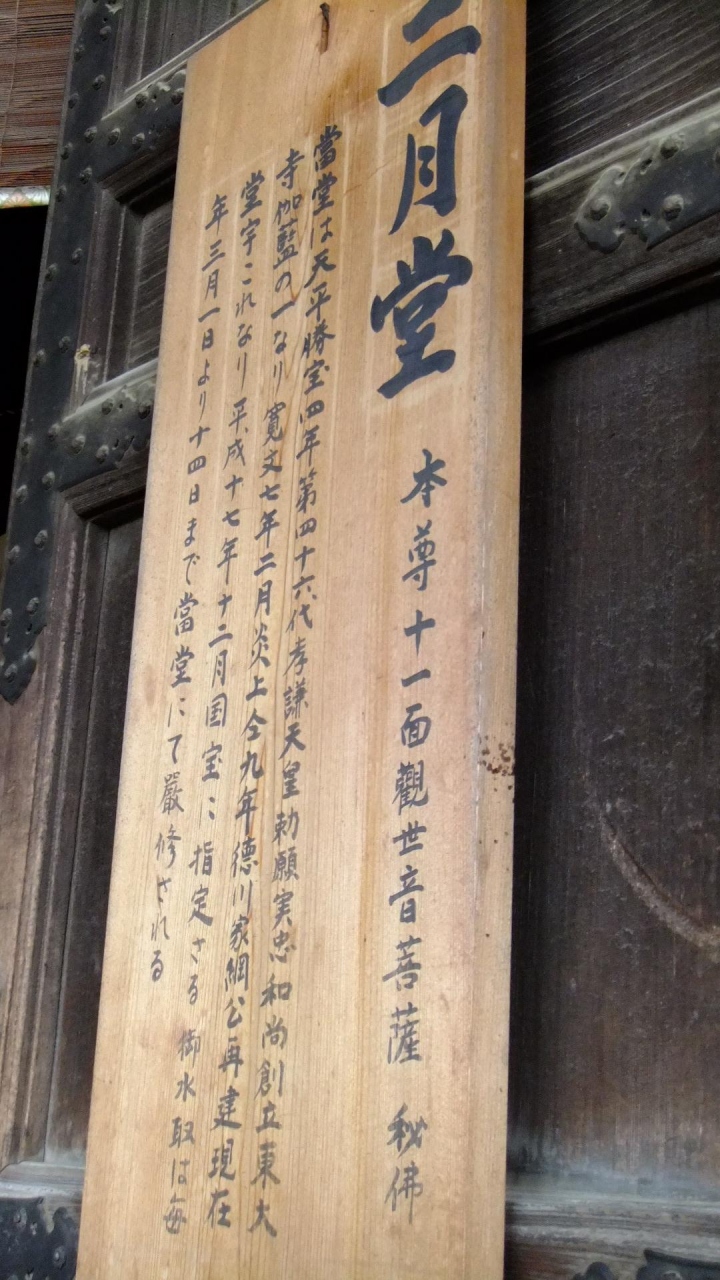 二月堂
本尊十一面觀世音菩薩 秘佛
當堂は天平勝宝四年第四十六代孝謙天皇勅願実忠和尚創立東大
寺伽藍の一なり寛文七年二月炎上仝九年徳川家綱公再建現在
堂宇これなり平成十七年十二月国宝に指定さる 御水取は毎
年三月一日より十四日まで當堂にて嚴修される